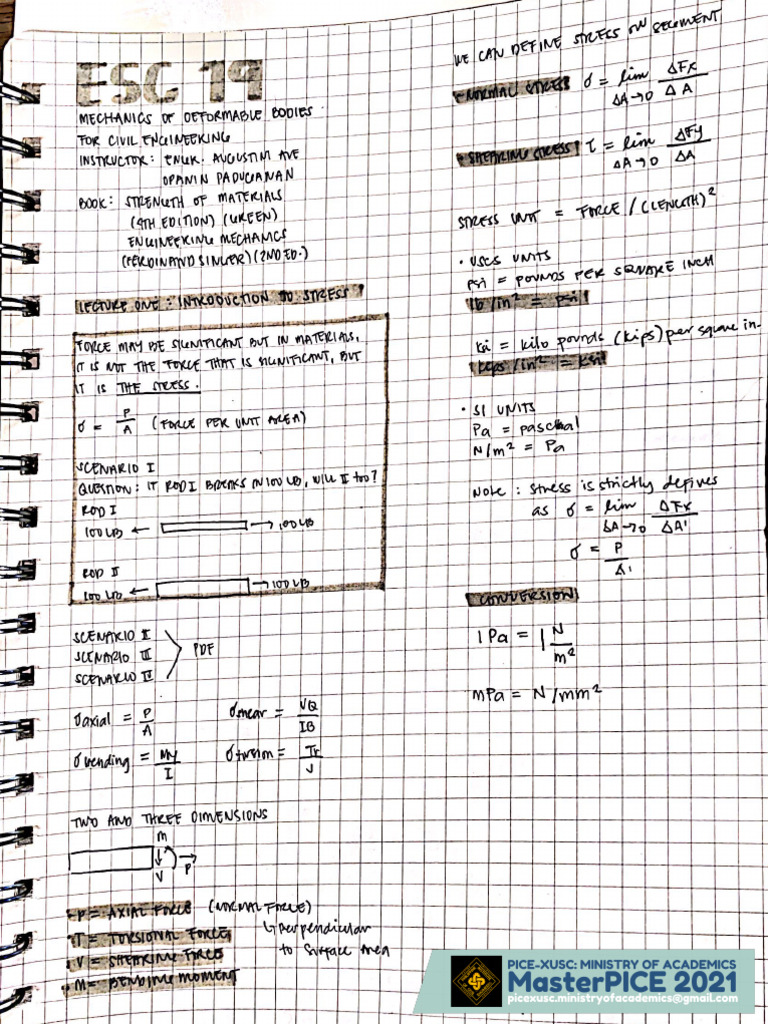 ESC 19
MECHANICS OF DEFORMABLE BODIES
FOR CIVIL ENGINEERING
INSTRUCTOR: ENGR. AUGUSTIM AVE
OPANIN PADUGANAN
BOOK: STRENGTH OF MATERIALS
(4TH EDITION) (GREEN)
ENGINEERING MECHANICS
(FERDINAND SINGER) (2ND ED.)
LECTURE ONE: INTRODUCTION TO STRESS
FORCE MAY BE SIGNIFICANT BUT IN MATERIALS,
IT IS NOT THE FORCE THAT IS SIGNIFICANT, BUT
IT IS THE STRESS.
σ = P/A (FORCE PER UNIT AREA)
SCENARIO I
QUESTION: IF ROD I BREAKS IN 100 LB, WILL II TOO?
ROD I
100 LB ← → 100 LB
ROD II
100 LB ← → 100 LB
SCENARIO II
SCENARIO III
SCENARIO IV
PDF
σ axial = P/A
σ shear = VQ/IB
σ bending = My/I
σ torsion = Tr/J
TWO AND THREE DIMENSIONS
M
V
P
P = AXIAL FORCE (NORMAL FORCE)
↳ perpendicular
to surface area
T = TORSIONAL FORCE
V = SHEARING FORCE
M = BENDING MOMENT
WE CAN DEFINE STRESS ON SEGMENT
NORMAL STRESS σ = lim ΔA→0 ΔFx/ΔA
SHEARING STRESS τ = lim ΔA→0 ΔFy/ΔA
STRESS UNIT = FORCE / (LENGTH)²
• USCS UNITS
psi = POUNDS PER SQUARE INCH
lb/in² = psi
ksi = kilo pounds (kips) per square in.
kips/in² = ksi
• SI UNITS
Pa = paschal
N/m² = Pa
Note: stress is strictly defines
as σ = lim ΔA→0 ΔFx/ΔA'
σ = P/A'
CONVERSION
1 Pa = 1 N/m²
mPa = N/mm²
PICE-XUSC: MINISTRY OF ACADEMICS
MasterPICE 2021
picexusc.ministryofacademics@gmail.com